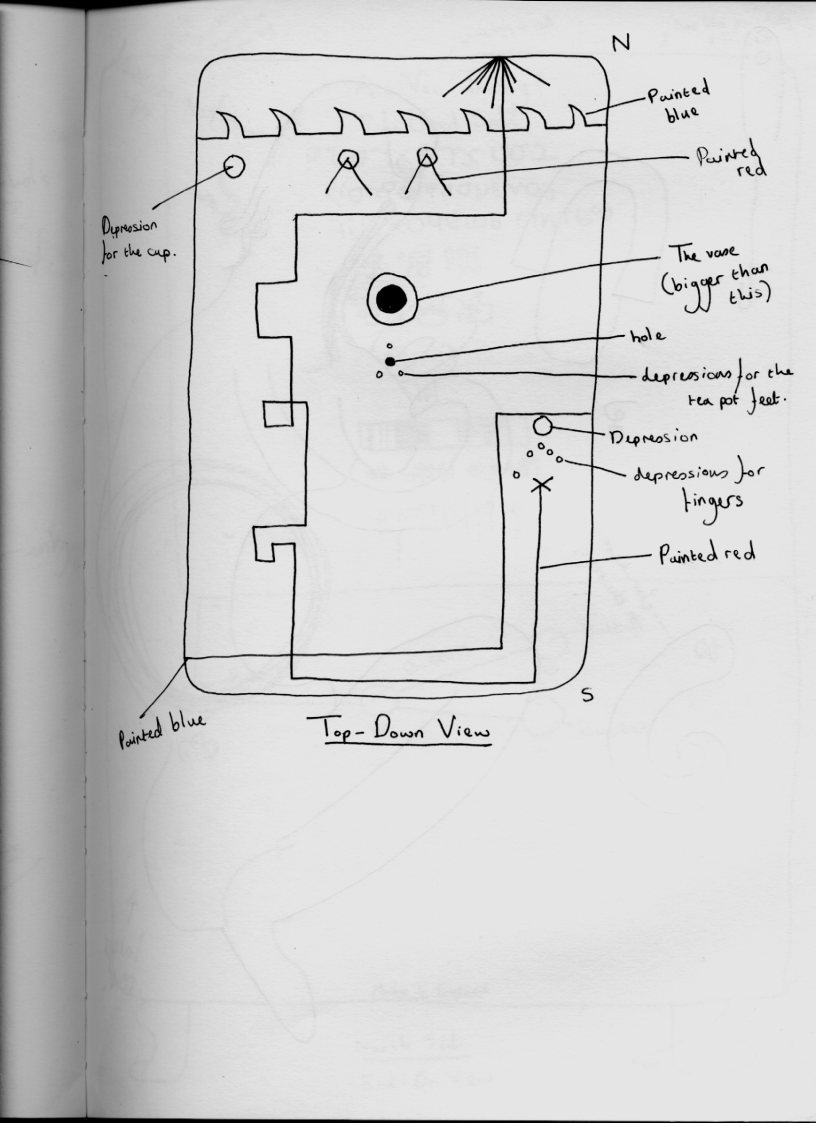 N
Painted
blue
Painted
red
Depression
for the cup.
The vase
(bigger than
this)
hole
depressions for the
tea pot feet.
Depression
depressions for
fingers
Painted red
S
Painted blue
Top-Down View